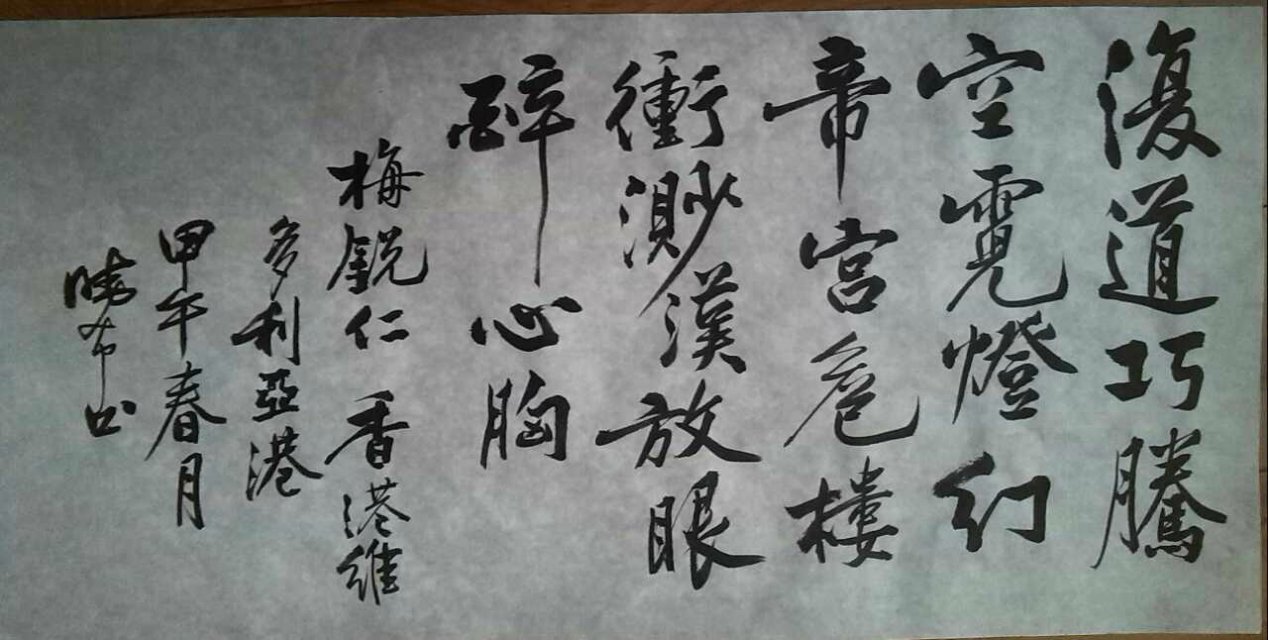 復道巧騰
空霓燈幻
帝宮危樓
衝渺漢放眼
醉心胸
梅銳仁 香港維
多利亞港
甲午春月